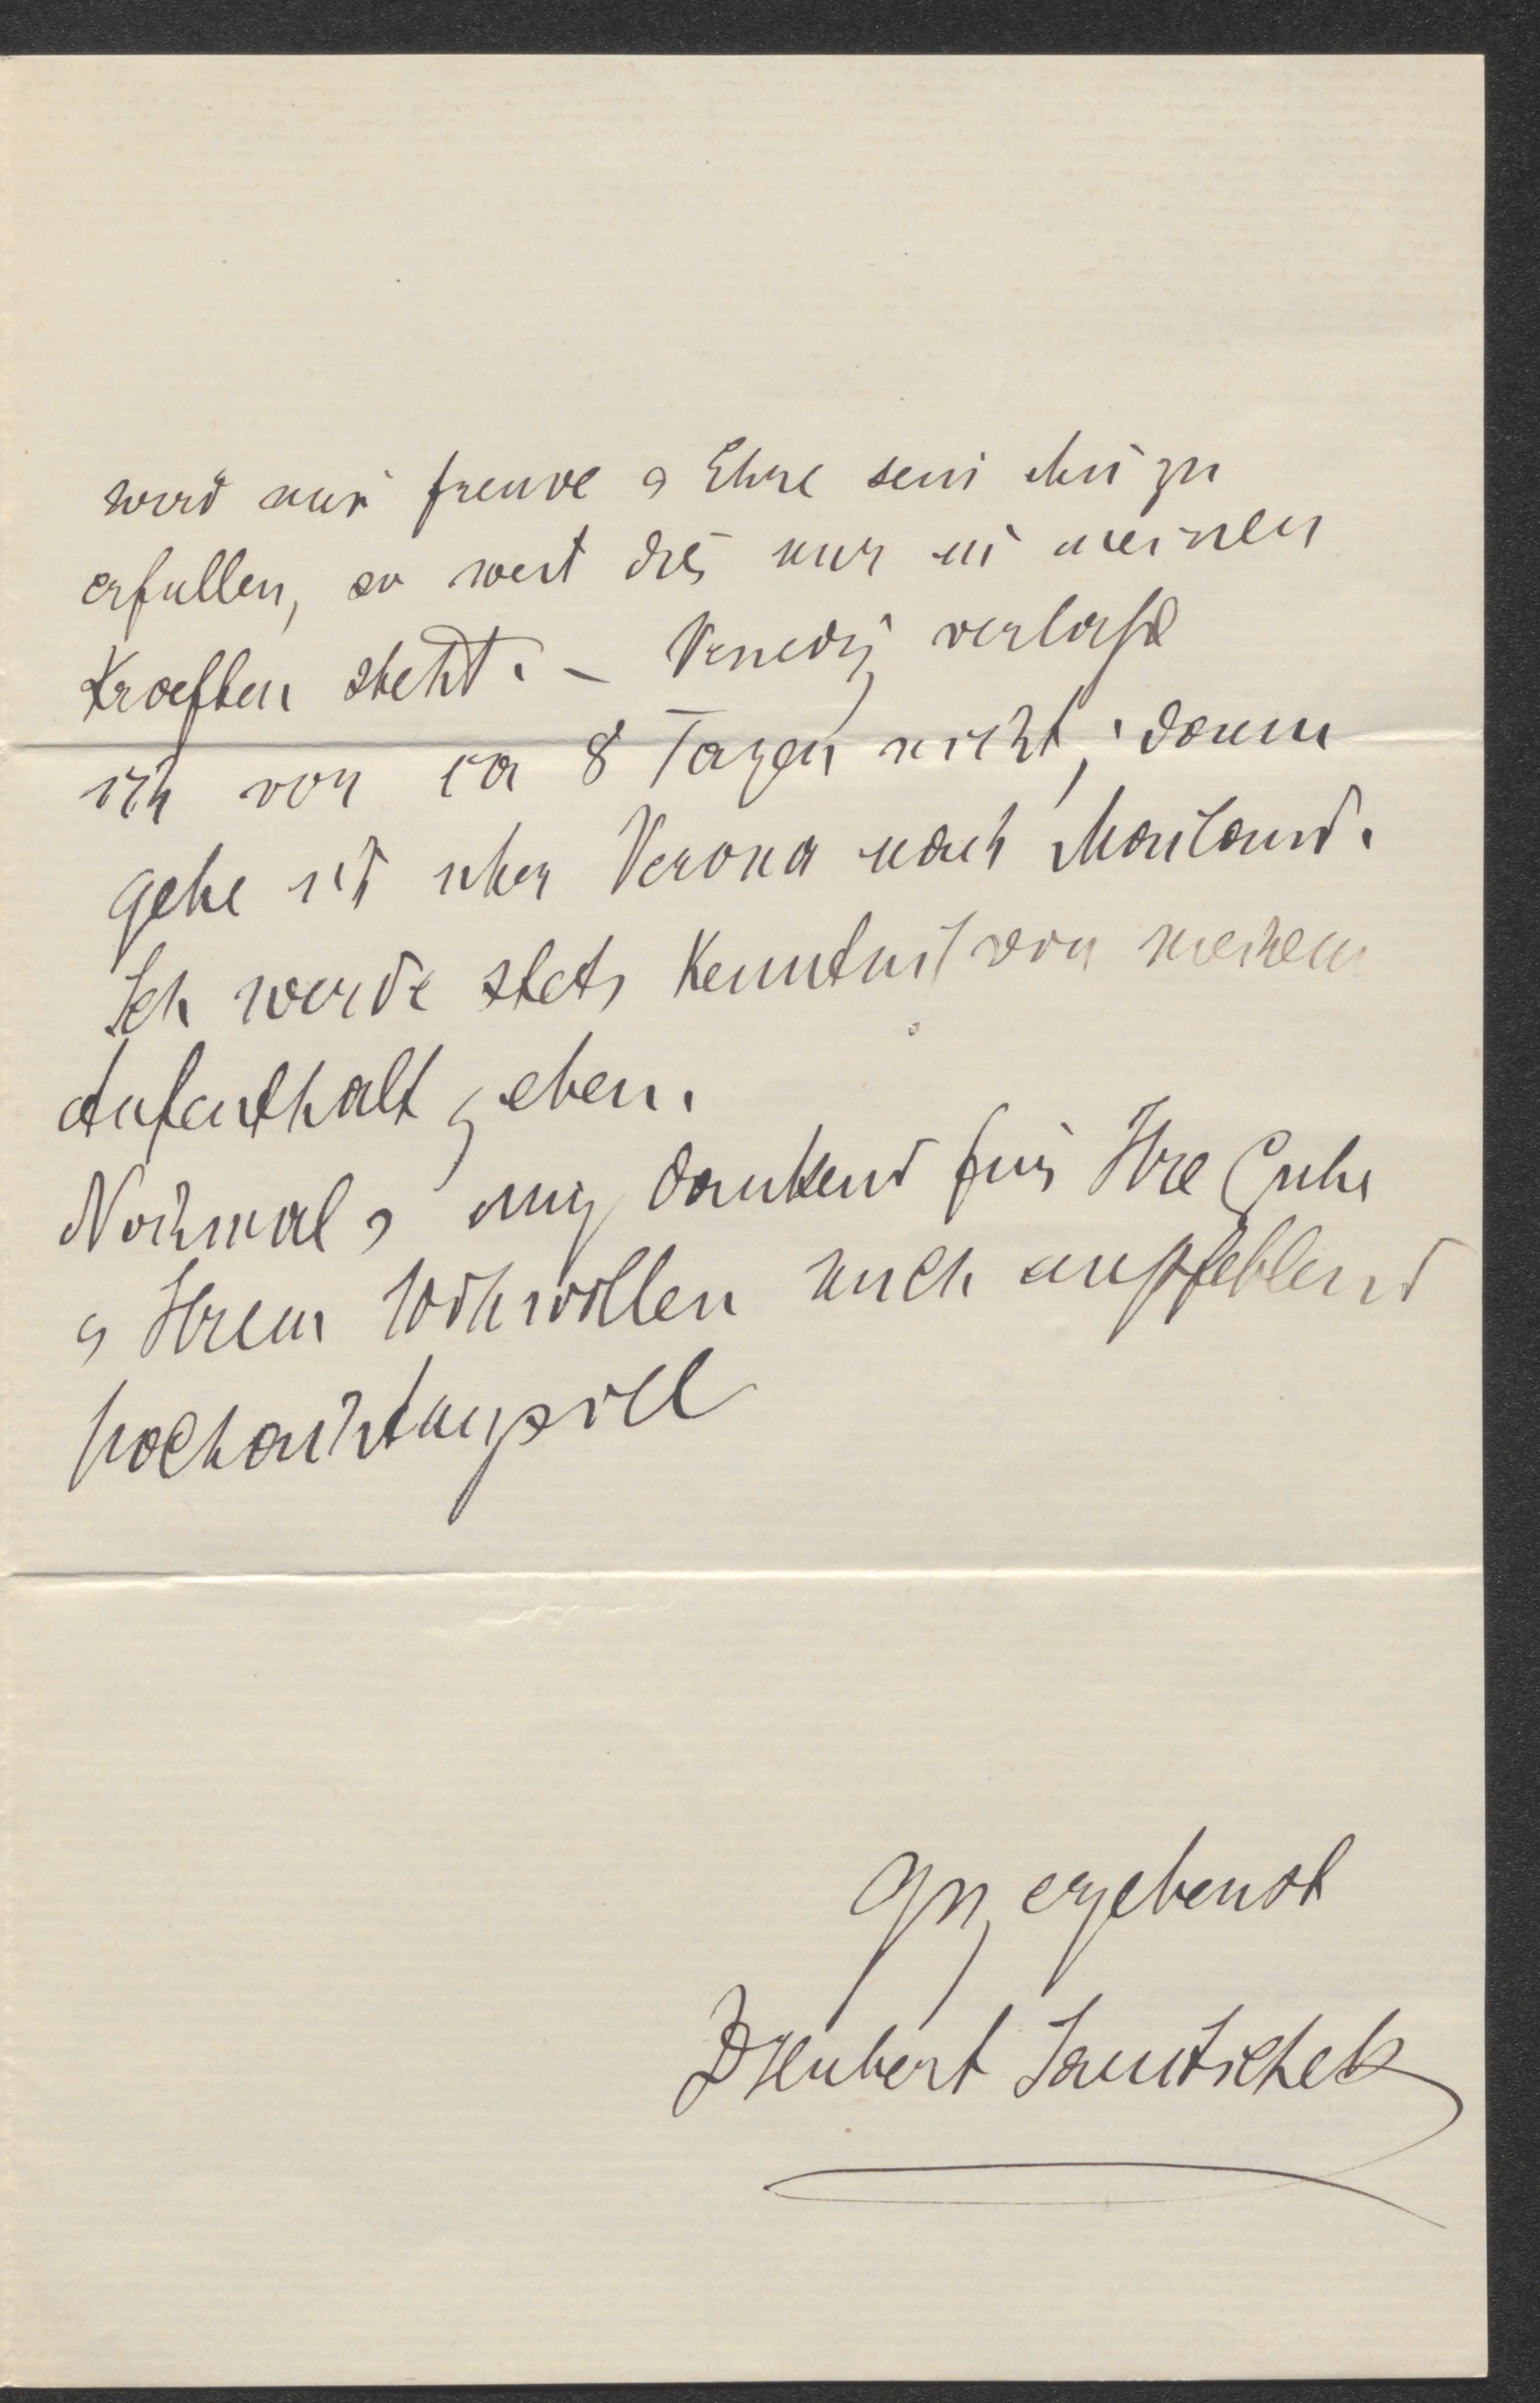 wird mir Freude & Ehre sein ihn zu
erfullen, so weit dies nur in meinen
Kraeften steht. – Venedig verlasse
ich vor ca 8 Tagen nicht; dann
gehe ich uber Verona nach Mailand.
Ich werde stets Kenntniß von meinem
Aufenthalt geben.
Nochmals innig dankend fur Ihre Gute
& Ihrem Wohlwollen mich empfehlend
hochachtungsvoll
Gnz ergebenst
DHubert Janitschek